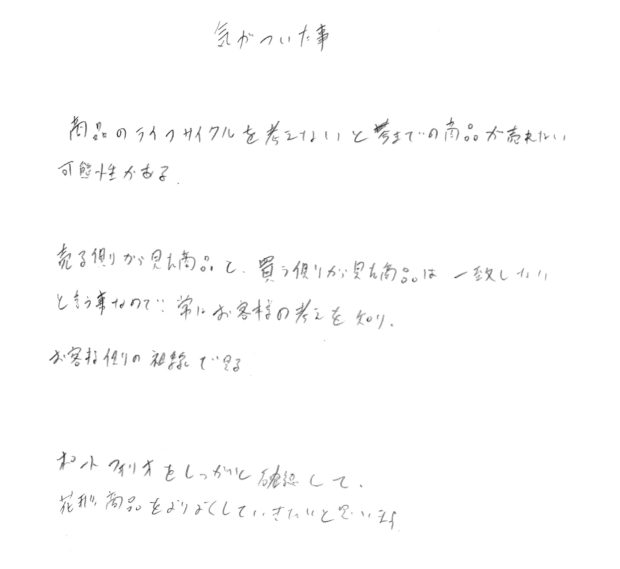 気がついた事
商品のライフサイクルを考えないと今までの商品が売れない
可能性がある。
売る側から見た商品と、買う側から見た商品は一致しない
と言う事なので、常にお客様の考えを知り、
お客様側の視線で見る
ポートフォリオをしっかりと確認して、
花形商品をよりよくしていきたいと思います